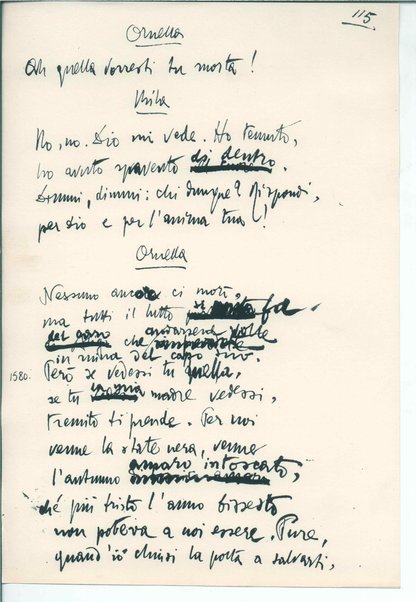 115
Ornella
Oh quella vorresti tu morta!
Mila
No, no. Dio mi vede. Ho temuto,
ho avuto spavento di dentro.
Dimmi, dimmi: chi dunque? Rispondi,
per Dio e per l'anima tua!
Ornella
Nessuno ancóra ci morì,
ma tutti il lutto
che volle
in mina del capo suo.
1580.
Però se vedessi tu quella,
se tu madre vedessi,
tremito ti prende. Per noi
venne la state nera, venne
l'autunno amaro intoscato,
ché più tristo l'anno bisesto
non poteva a noi essere. Pure,
quand'io chiusi la porta a salvarti,